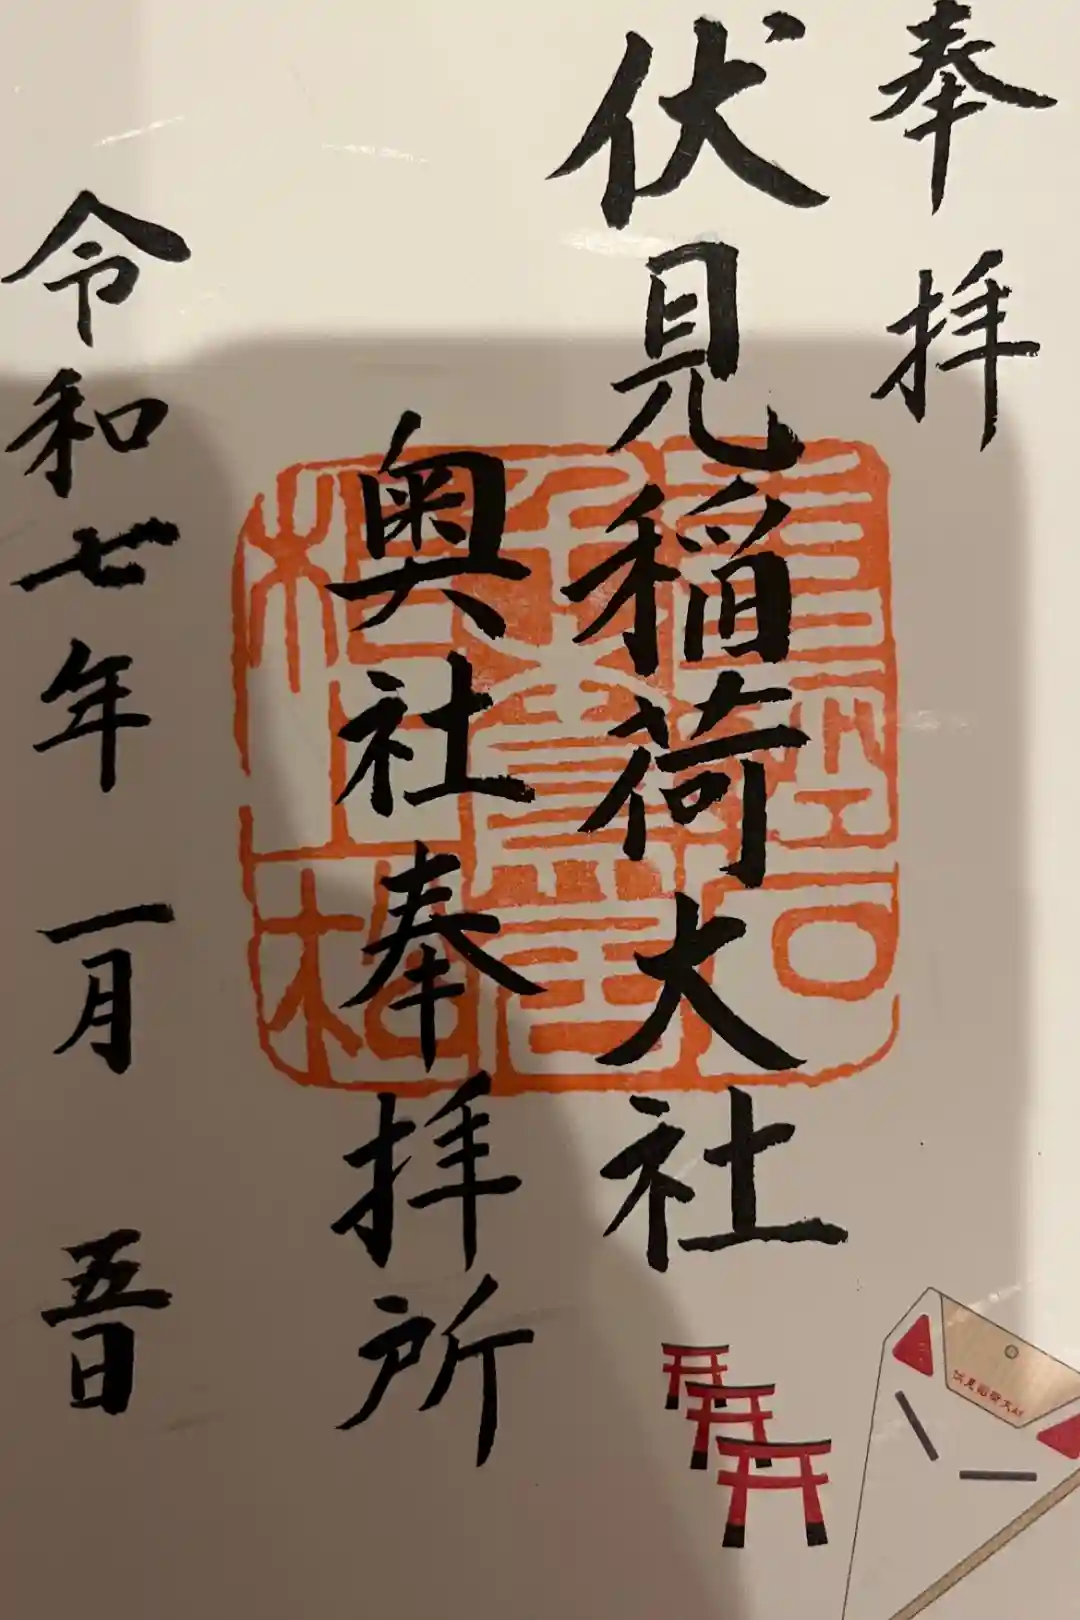 奉拝
伏見稲荷大社
奥社奉拝所
令和七年一月五日
伏見稲荷大社